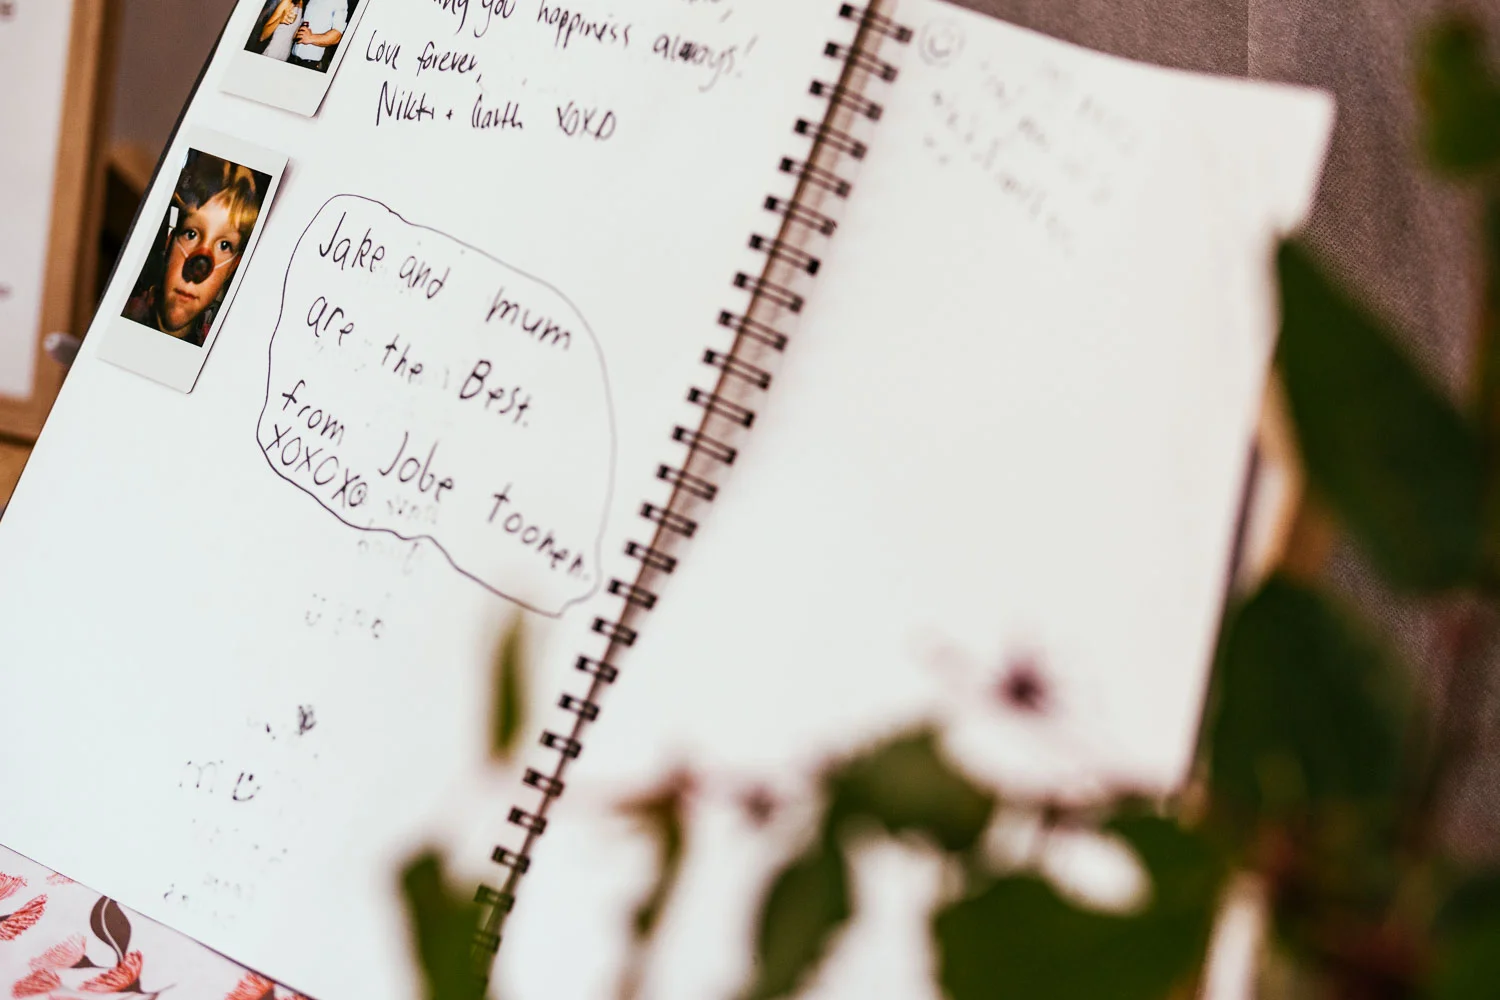 you happiness always!
Love forever,
Nikki + Garth XOXO
Jake and mum
are the Best.
from Jobe toonen.
XOXOXO